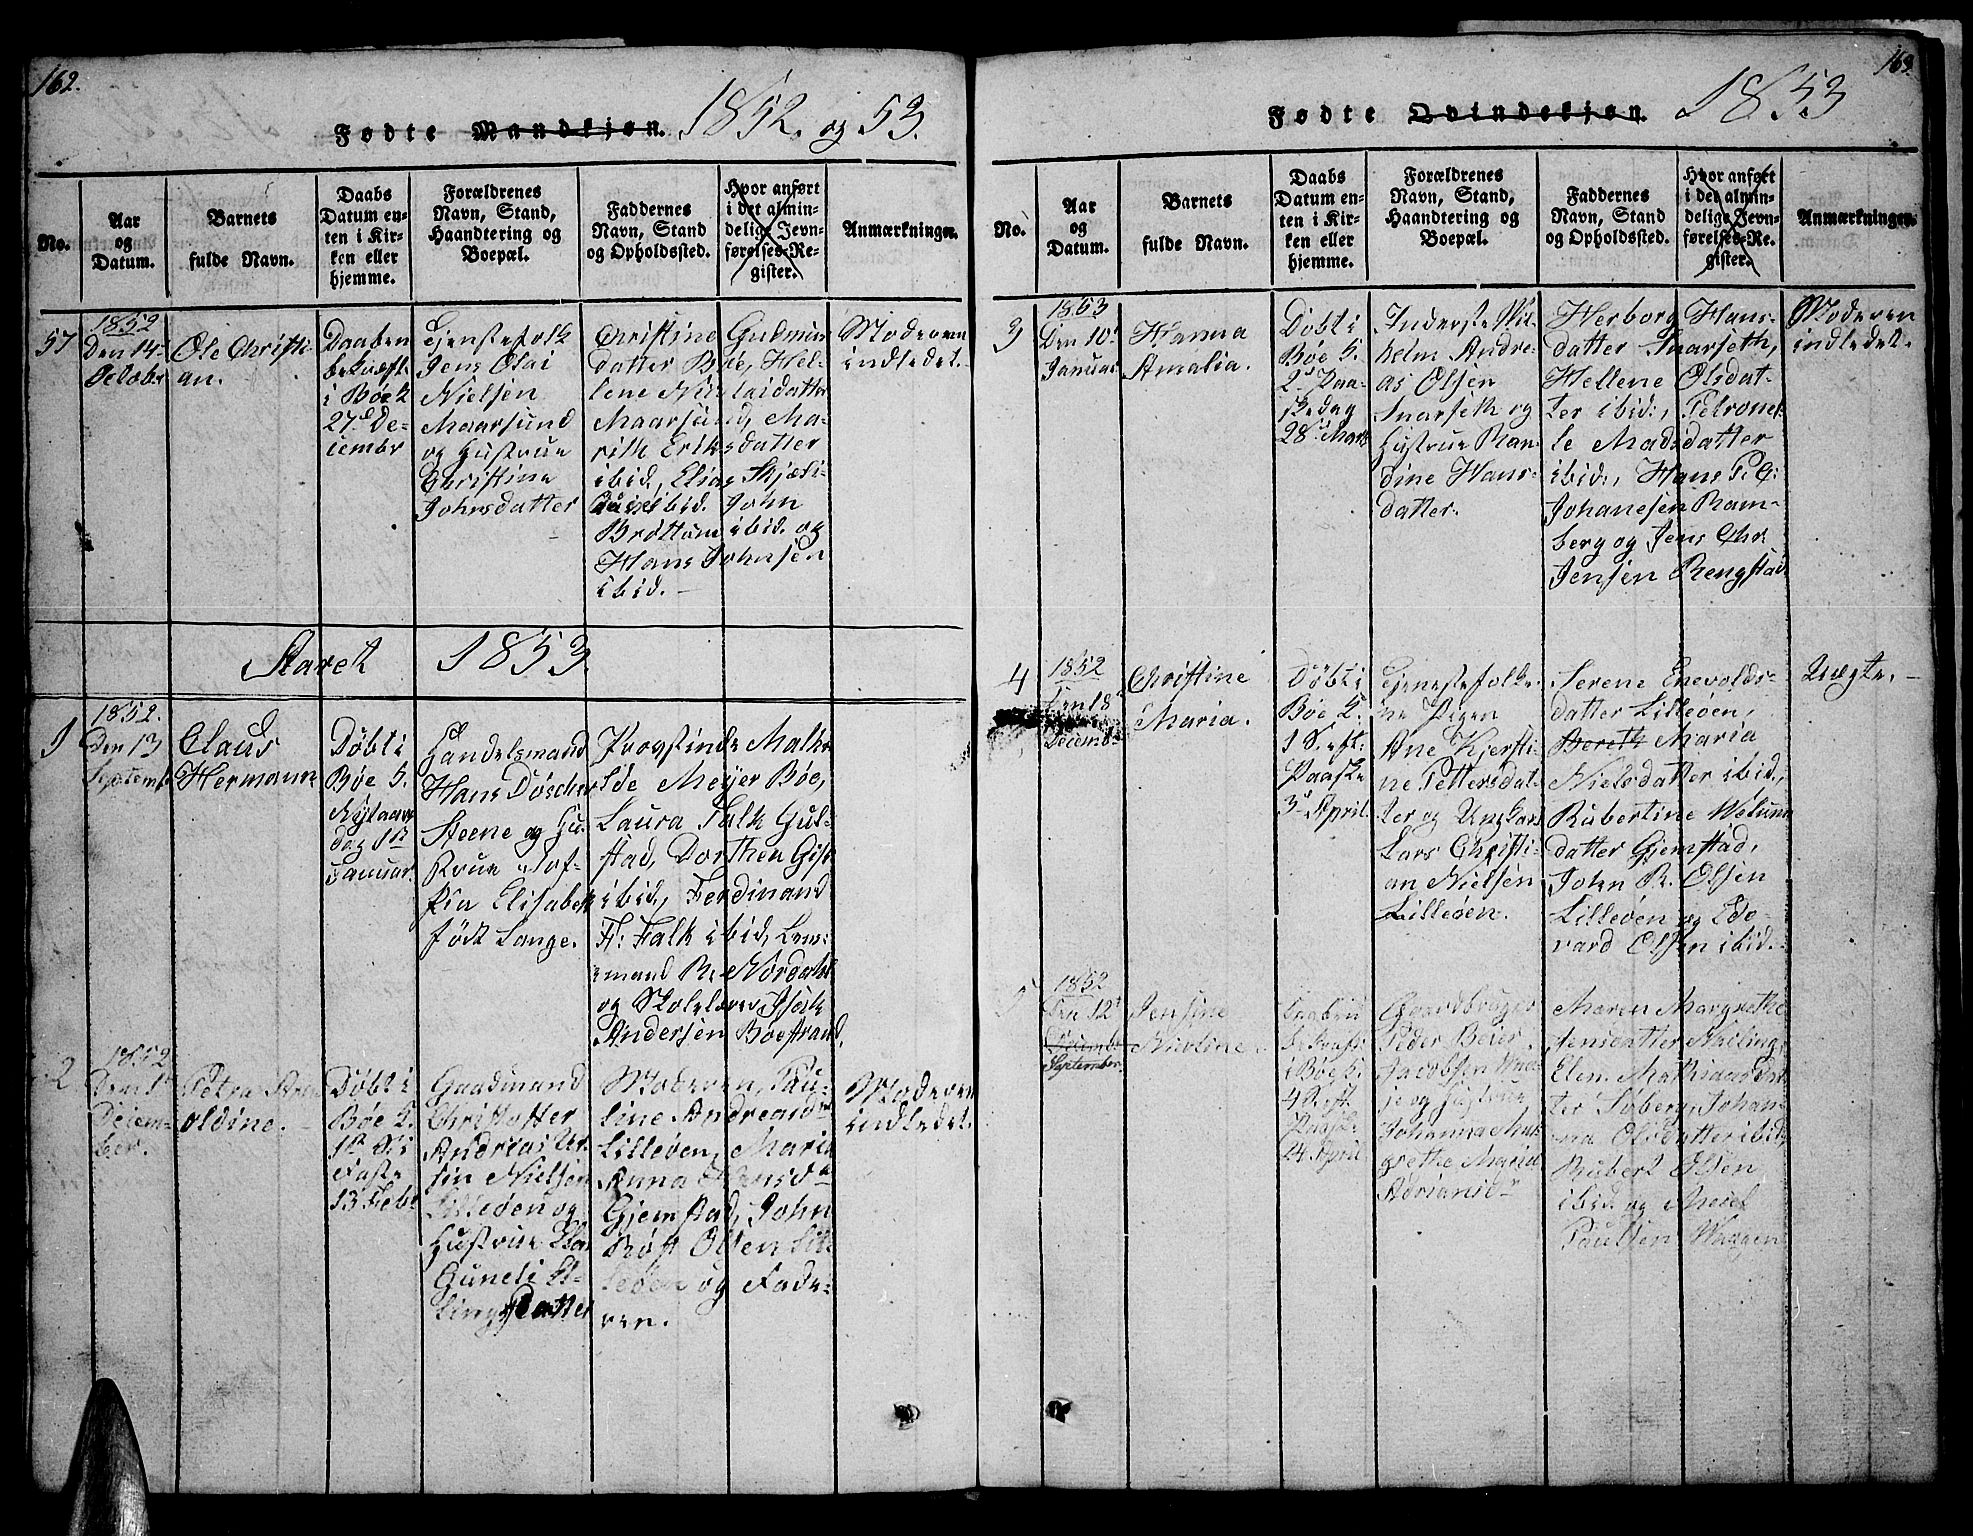 162.
Fødte Mandkjøn. 1852. og 53.
No.
Aar og Datum.
Barnets fulde Navn.
Daabs Datum enten i Kirken eller hjemme.
Forældrenes Navn, Stand, Haandtering og Boepæl.
Faddernes Navn, Stand og Opholdssted.
Hvor anført i det almindelige Jevnførelses-Register.
Anmærkninger.
57
1852
Den 14
October
Ole Christi-
an.
Daaben
bekræft
i Böe K
27 De-
cember
Tjenstefolk
Jens Olai
Nielsen
Maarsund
og Hustrue
Christine
Johnsdatter
Christine Gudmun
datter Böe, Hel-
lene Nicolaidatter
Maarsund, Ma-
rith Eriksdatter
ibid, Elias
ibid. John
Brøttum ibid. og
Hans Johnsen
ibid. -
Moderen
indledet.
Aaret 1853
1
1852.
Den 13
Septemb
Claus
Hermann
Döbt i
Böe K.
Nytaars
dag 1st
Januar.
Handelsmand
Hans Döscher
Steene og Hu-
strue Sof-
fia Elisabeth
född Lange.
Provstinde Mathi
lde Meyer Böe,
Laura Falk Gul-
stad, Dorthea
ibid, Ferdinand
F: Falk ibid, Lens-
mand R. Nordahl
og Skolelærer Isach
Andersen Böestrand.
2
1852
Den 1st
Decem-
ber.
Petra Arn
oldine.
Döbt i
Böe K.
1st S. i
Faste
13 Febr
Gaadmand
Christoffer
Andreas
Nielsen
Lilleöen og
Hustrue
Guneli El-
lingsdatter
Moderen, Pau-
line Andreasdr
Lilleöen, Maria
Anna Hansdr
Gjemstad, John
Röst Olsen Lil-
leöen og Fade-
ren.
Moderen
indledet.
163.
Fødte Qvindekjøn. 1853
No.
Aar og Datum.
Barnets fulde Navn.
Daabs Datum enten i Kirken eller hjemme.
Forældrenes Navn, Stand, Haandtering og Boepæl.
Faddernes Navn, Stand og Opholdssted.
Hvor anført i det almindelige Jevnførelses-Register.
Anmærkninger.
3
1853
Den 10
Januar
Hanna
Amalia.
Döbt i
Böe K.
2 Paa-
skedag
28 Marts
Inderste Wil-
helm Andre-
as Olsen
Snarseth og
Hustrue Ran-
dine Hans-
datter.
Herborg Hans-
datter Snarseth,
Hellene Olsdat-
ter ibid:, Petronel-
le Madsdatter
ibid:, Hans P. C:
Johanesen Ram-
berg og Jens Chr.
Jensen Rengstad
Moderen
indledet.
4
1852
Den 18
Decemb
Christine
Maria.
Döbt i
Böe K.
1 S. eft:
Paaske
3 April
Tjenestefolke-
ne Pigen
Ane Kjersti-
ne Pettersdat-
ter og Ungkarl
Lars Christi-
an Nielsen
Lilleöen.
Serene Enevolds-
datter Lilleöen,
Bereth Maria
Nielsdatter ibid,
Rubertine Welum
datter Gjemstad,
John R. Olsen
Lilleöen og Edo-
vard Olsen ibid. -
Uægte. -
5
1852
Den 12
Decemb
September.
Jensine
Nicoline
Daaben
bekræft
i Böe K.
4 S. eft
Paaske
24 April
Gaardbruger
Peder Beier
Jacobsen
og Hustrue
Johanna Mar
grethe Maria
Adriansdr
Maren Margrethe
Jensdatter
Elen Mathiasdat
ter Soberg, Johan-
na Olsdatter ibid,
Rubert Olsen
ibid og
Paulsen Waagen